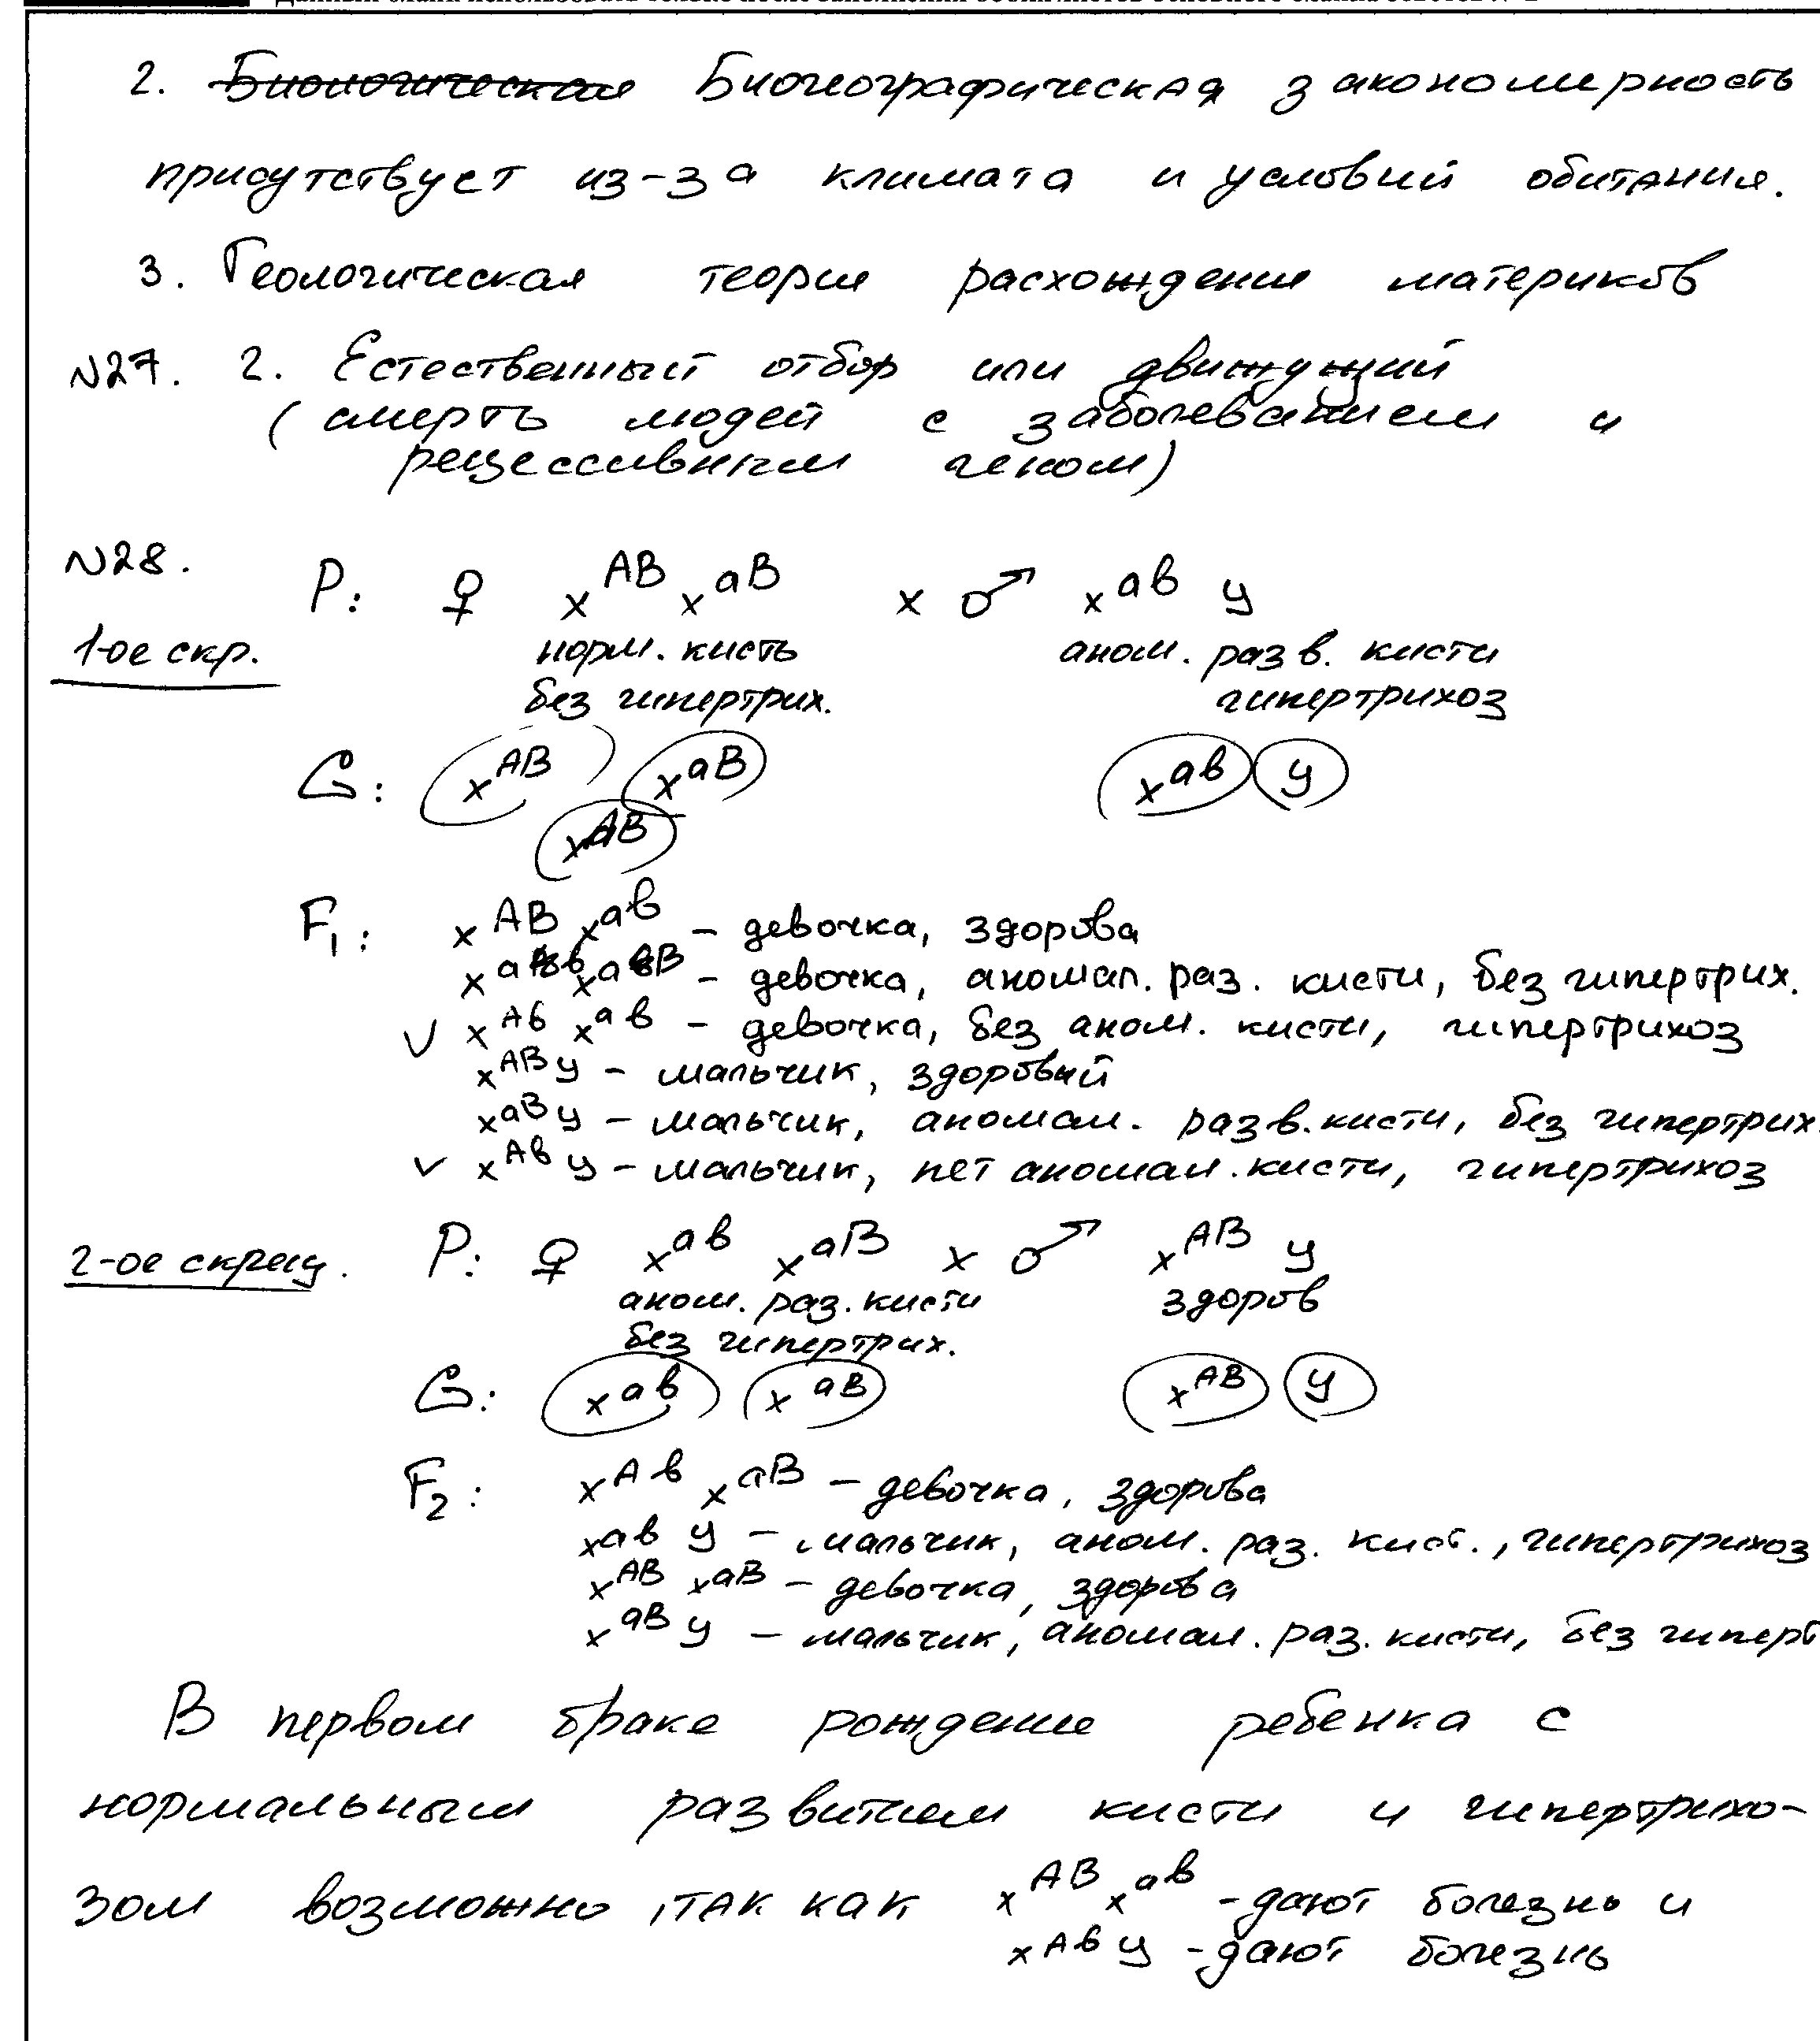 2. Биологическая Биогеографическая закономерность
присутствует из-за климата и условий обитания.
3. Геологическая теория расхождения материков
N27. 2. Естественный отбор или движущий
(смерть людей с заболеванием и
рецессивным геном)
N28.
P: ♀ x^AB x^aB x ♂ x^ab y
1-ое скр. норм. кисть аном. разв. кисти
без гипертрих. гипертрихоз
G: x^AB x^aB x^ab y
F1: x^AB x^ab – девочка, здорова
– девочка, аномал. раз. кисти, без гипертрих.
V x^Ab x^ab – девочка, без аном. кисти, гипертрихоз
x^AB y – мальчик, здоровый
x^aB y – мальчик, аномал. разв. кисти, без гипертрих.
V x^Ab y – мальчик, нет аномал. кисти, гипертрихоз
2-ое скрещ. P: ♀ x^ab x^aB x ♂ x^AB y
аном. раз. кисти здоров
без гипертрих.
G: x^ab x^aB x^AB y
F2: x^Ab x^aB – девочка, здорова
x^ab y – мальчик, аном. раз. кист., гипертрихоз
x^AB x^aB – девочка, здорова
x^aB y – мальчик, аномал. раз. кисти, без гиперт
В первом браке рождение ребенка с
нормальным развитием кисти и гипертрихо-
зом возможно, так как x^AB x^ab - дают болезнь и
x^Ab y - дают болезнь